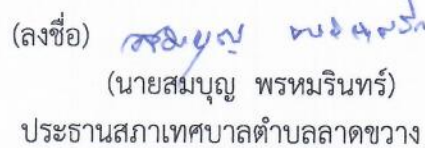 (ลงชื่อ) สมบุญ
(นายสมบุญ พรหมรินทร์)
ประธานสภาเทศบาลตำบลลาดขวาง